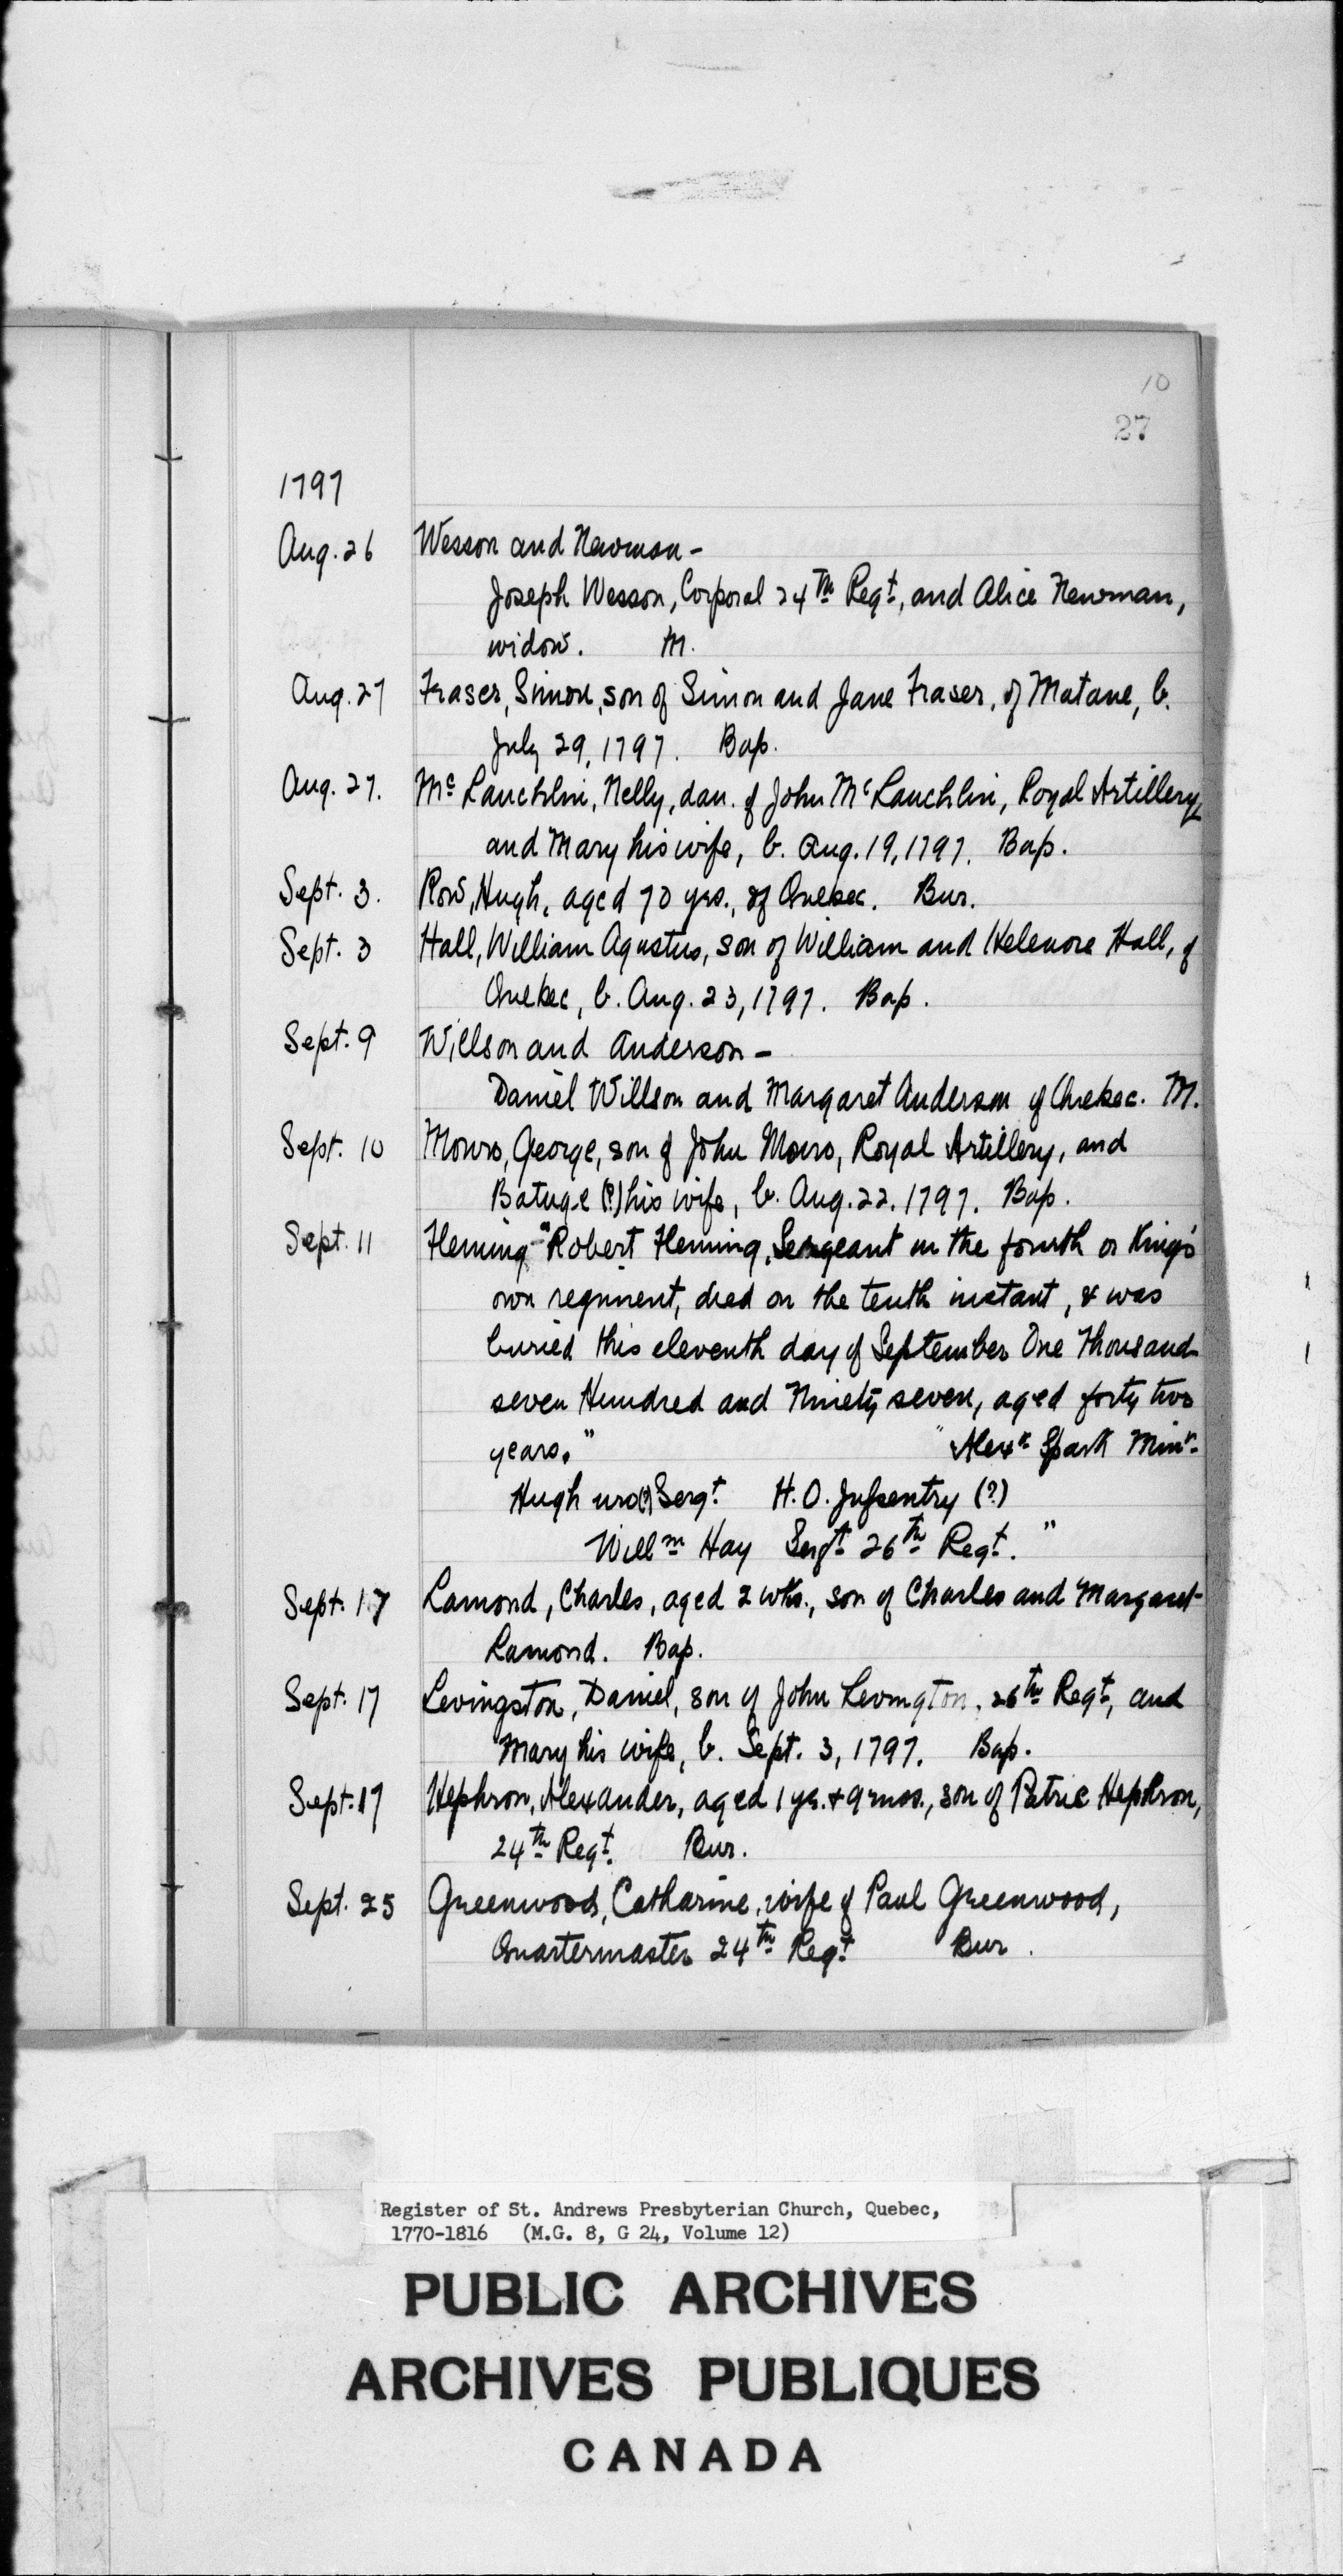 10
27
1797
Aug. 26 Wesson and Newman -
Joseph Wesson, Corporal 24th Regt, and Alice Newman,
widow. M.
Aug. 27 Fraser, Simon, son of Simon and Jane Fraser, of Matane, b.
July 29, 1797. Bap.
Aug. 27. Mc Lauchlin, Nelly, dau. of John McLauchlin, Royal Artillery
and Mary his wife, b. Aug. 19, 1797. Bap.
Sept. 3. Row, Hugh, aged 70 yrs., of Quebec. Bur.
Sept. 3 Hall, William Agustus, son of William and Helenore Hall, of
Quebec, b. Aug. 23, 1797. Bap.
Sept. 9 Willson and Anderson -
Daniel Willson and Margaret Anderson of Quebec. M.
Sept. 10 Monro, George, son of John Monro, Royal Artillery, and
Batuge (?) his wife, b. Aug. 22. 1797. Bap.
Sept. 11 Fleming "Robert Fleming, Sergeant in the fourth or King's
own regiment, died on the tenth instant, & was
buried this eleventh day of September One Thousand
seven Hundred and Ninety seven, aged forty two
years." " Alexr Spark Minr.
Hugh uro(?) Sergt. H. O. Infentry (?)
Willm Hay Sergt 26th Regt. "
Sept. 17 Lamond, Charles, aged 2 wks., son of Charles and Margaret
Lamond. Bap.
Sept. 17 Levingston, Daniel, son of John Levington, 26th Regt, and
Mary his wife, b. Sept. 3, 1797. Bap.
Sept. 17 Hephron, Alexander, aged 1 yr. + 9 mos., son of Patric Hephron,
24th Regt. Bur.
Sept. 25 Greenwood, Catharine, wife of Paul Greenwood,
Quartermaster 24th Regt Bur.
Register of St. Andrews Presbyterian Church, Quebec,
1770-1816 (M.G. 8, G 24, Volume 12)
PUBLIC ARCHIVES
ARCHIVES PUBLIQUES
CANADA